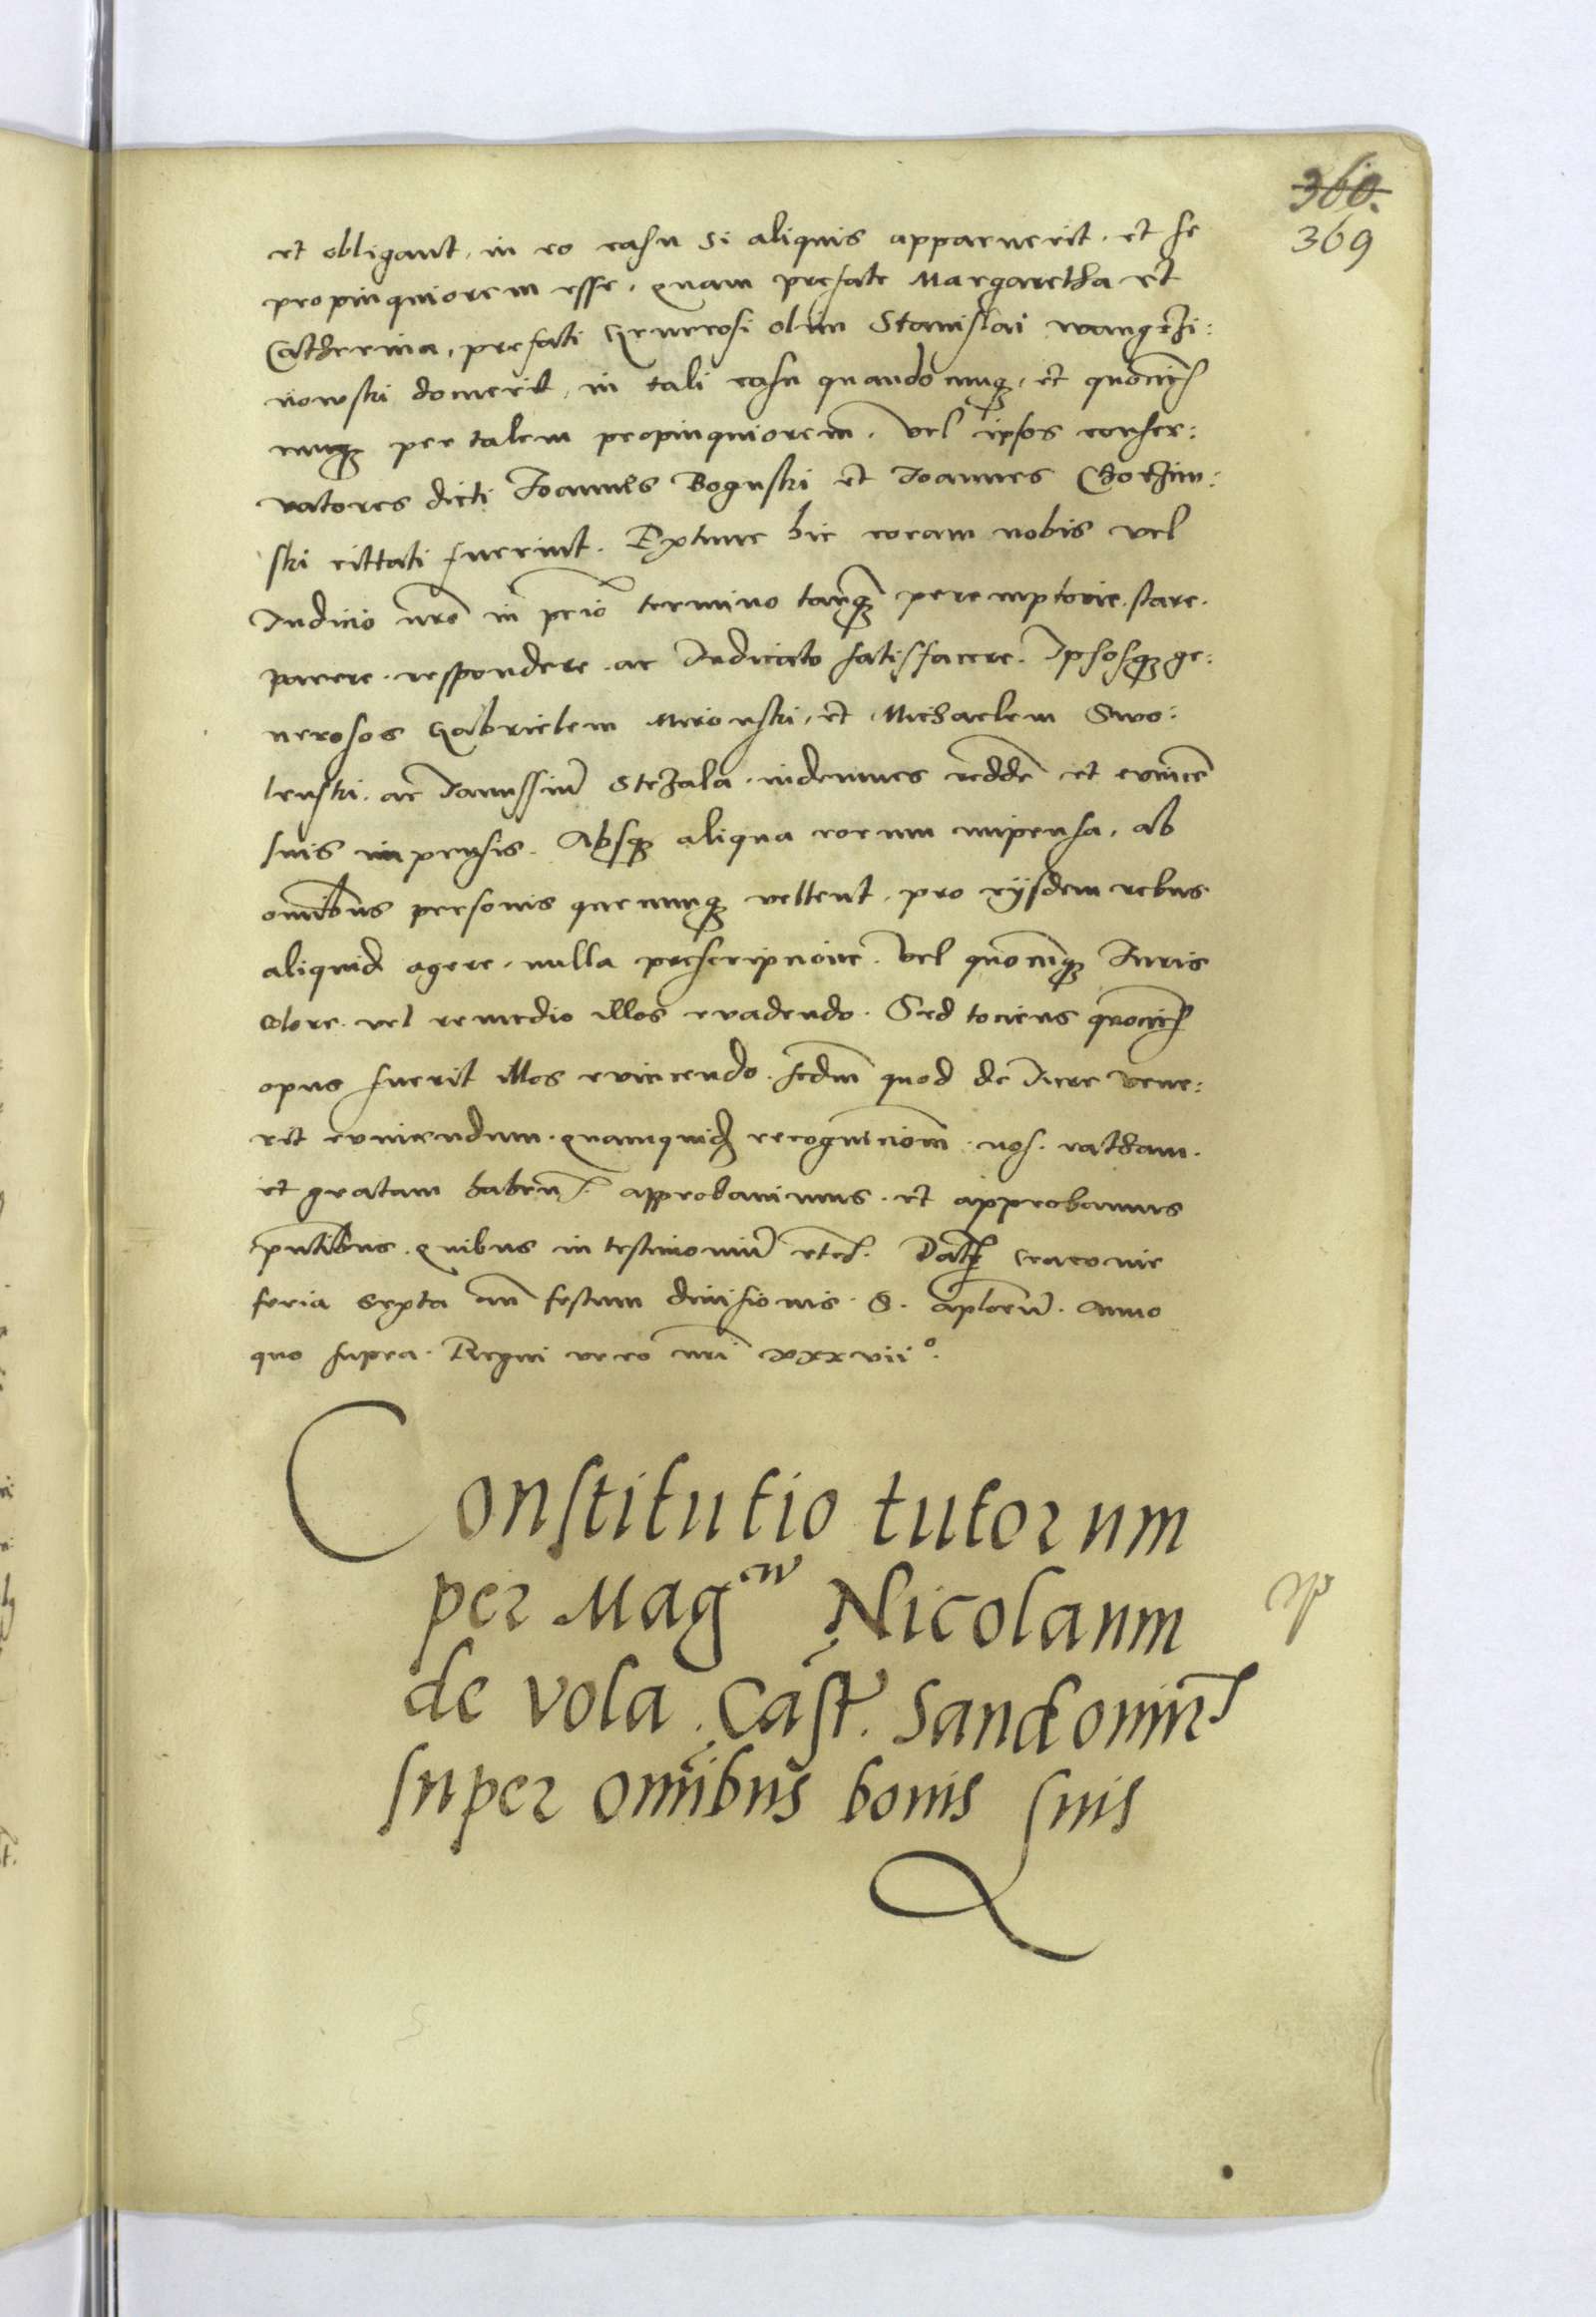 360.
369
et obligant, in eo casu si aliquis apparuerit. et se
propinquiorem esse, quam prefate Margaretha et
Catherina, prefati Generosi olim Stanislai wangrzi:
nowski docuerit, in tali casu quandocunq3, et quocies
cunq3 per talem propinquiorem. vel ipsos conser:
vatores dicti Joannes Boguski et Joannes Chotzim:
ski cittati fuerint. Extunc hic coram nobis vel
Judicio nro in prio termino tanq3 peremptorie. stare.
parere. respondere. ac Judicato satisfacere. Ipsosq3 ge:
nerosos Gabrielem Mironski, et Michaelem Swo:
lenski. ac Janussiu Stezala. indemnes redde et evince
suis impensis. Absq3 aliqua eorum impensa, ab
omibus personis quecunq3 vellent, pro eijsdem rebus
aliquid agere, nulla prescripcione. vel quocunq3 Juris
colore. vel remedio illos evadendo. Sed tociens quocies
opus fuerit illos evincendo. sedm quod de Jure vene:
rit evincendum. quamquid recognicionem. nos. ratham.
et gratam haben. approbavimus. et approbamus
pntibus. quibus in testimoniu etc. Dat Cracovie
feria sexta an festum divisionis. S. aplorum. Anno
quo supra. Regni vero nri xxxvii°.
Constitutio tutorum
per Mag^m Nicolaum
de vola. Cast. Sandomir
super omibus bonis suis